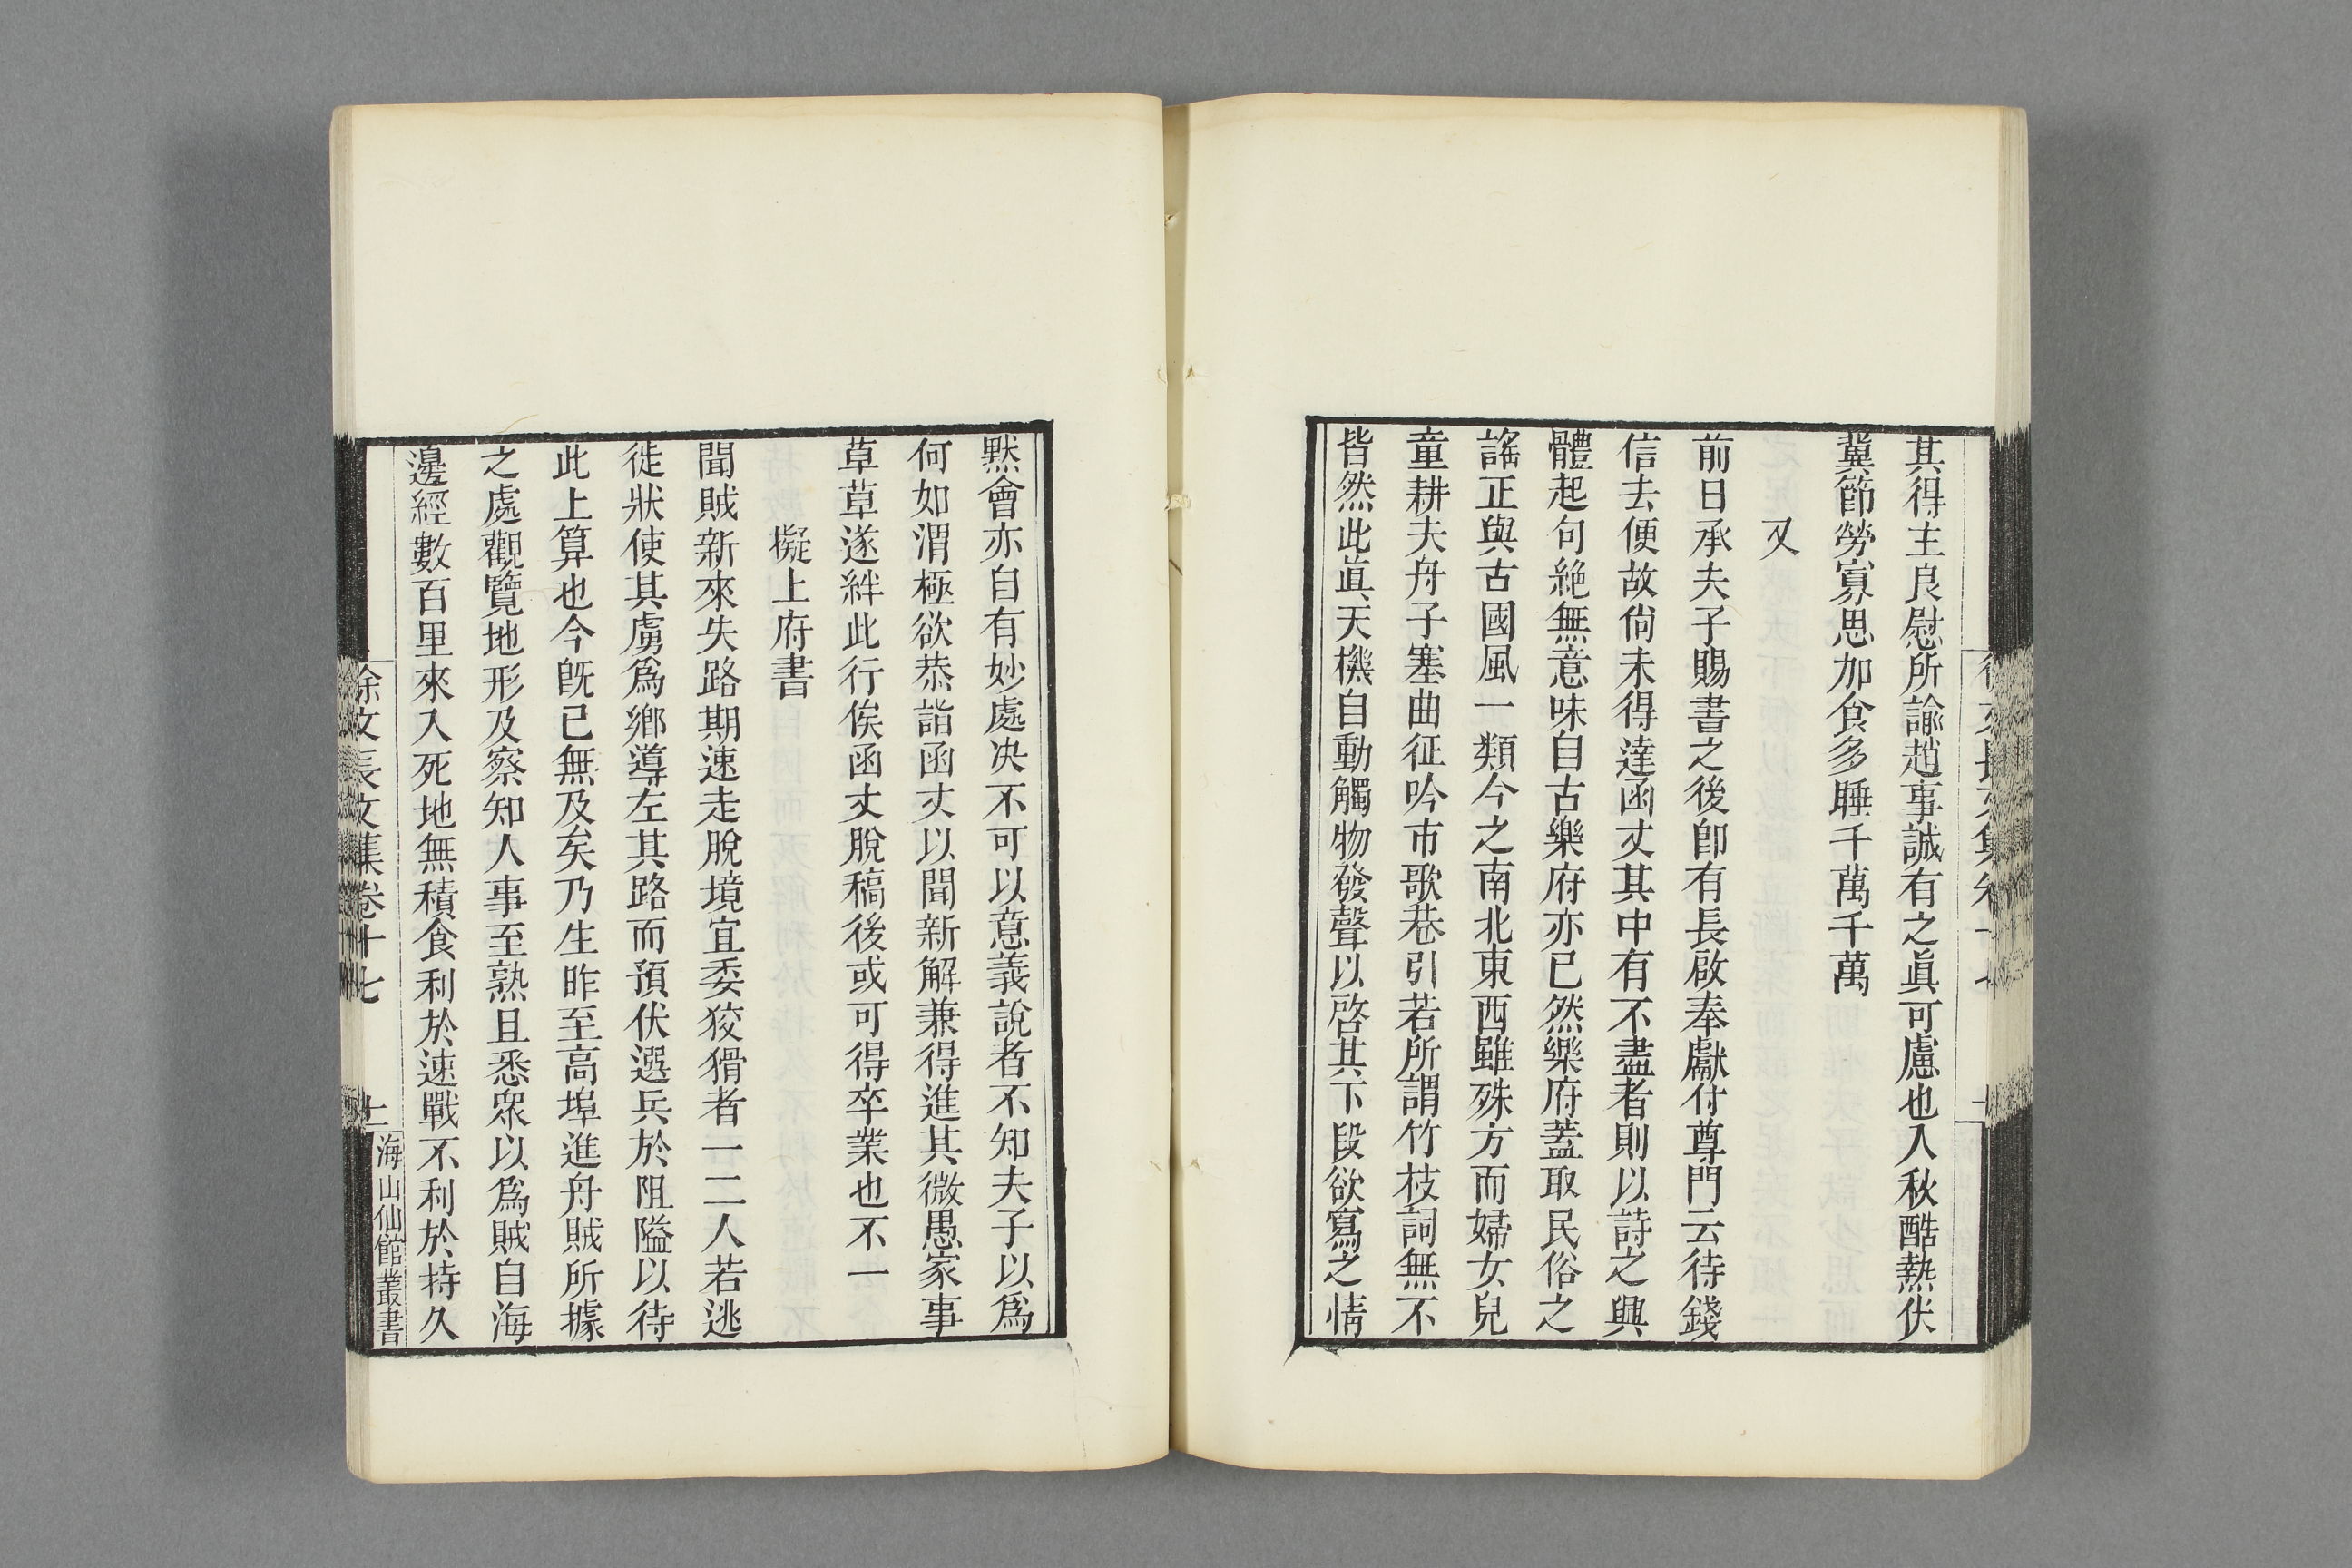 其得主良慰所諭趙事誠有之眞可慮也入秋酷熱伏
冀節勞寡思加食多睡千萬千萬
又
前日承夫子賜書之後卽有長啟奉獻付尊門云待錢
信去便故尙未得達函丈其中有不盡者則以詩之興
體起句絶無意味自古樂府亦已然樂府蓋取民俗之
謠正與古國風一類今之南北東西雖殊方而婦女兒
童耕夫舟子塞曲征吟市歌巷引若所謂竹枝詞無不
皆然此眞天機自動觸物發聲以啓其下段欲寫之情
默會亦自有妙處决不可以意義說者不知夫子以爲
何如渭極欲恭詣函丈以聞新解兼得進其微愚家事
草草遂絆此行俟函丈脫稿後或可得卒業也不一
擬上府書
聞賊新來失路期速走脫境宜委狡猾者一二人若逃
徙狀使其虜爲鄉導左其路而預伏選兵於阻隘以待
此上算也今旣已無及矣乃生昨至高埠進舟賊所據
之處觀覽地形及察知人事至熟且悉衆以爲賊自海
邊經數百里來入死地無積食利於速戰不利於持久
徐文長文集卷十七
海山仙館叢書